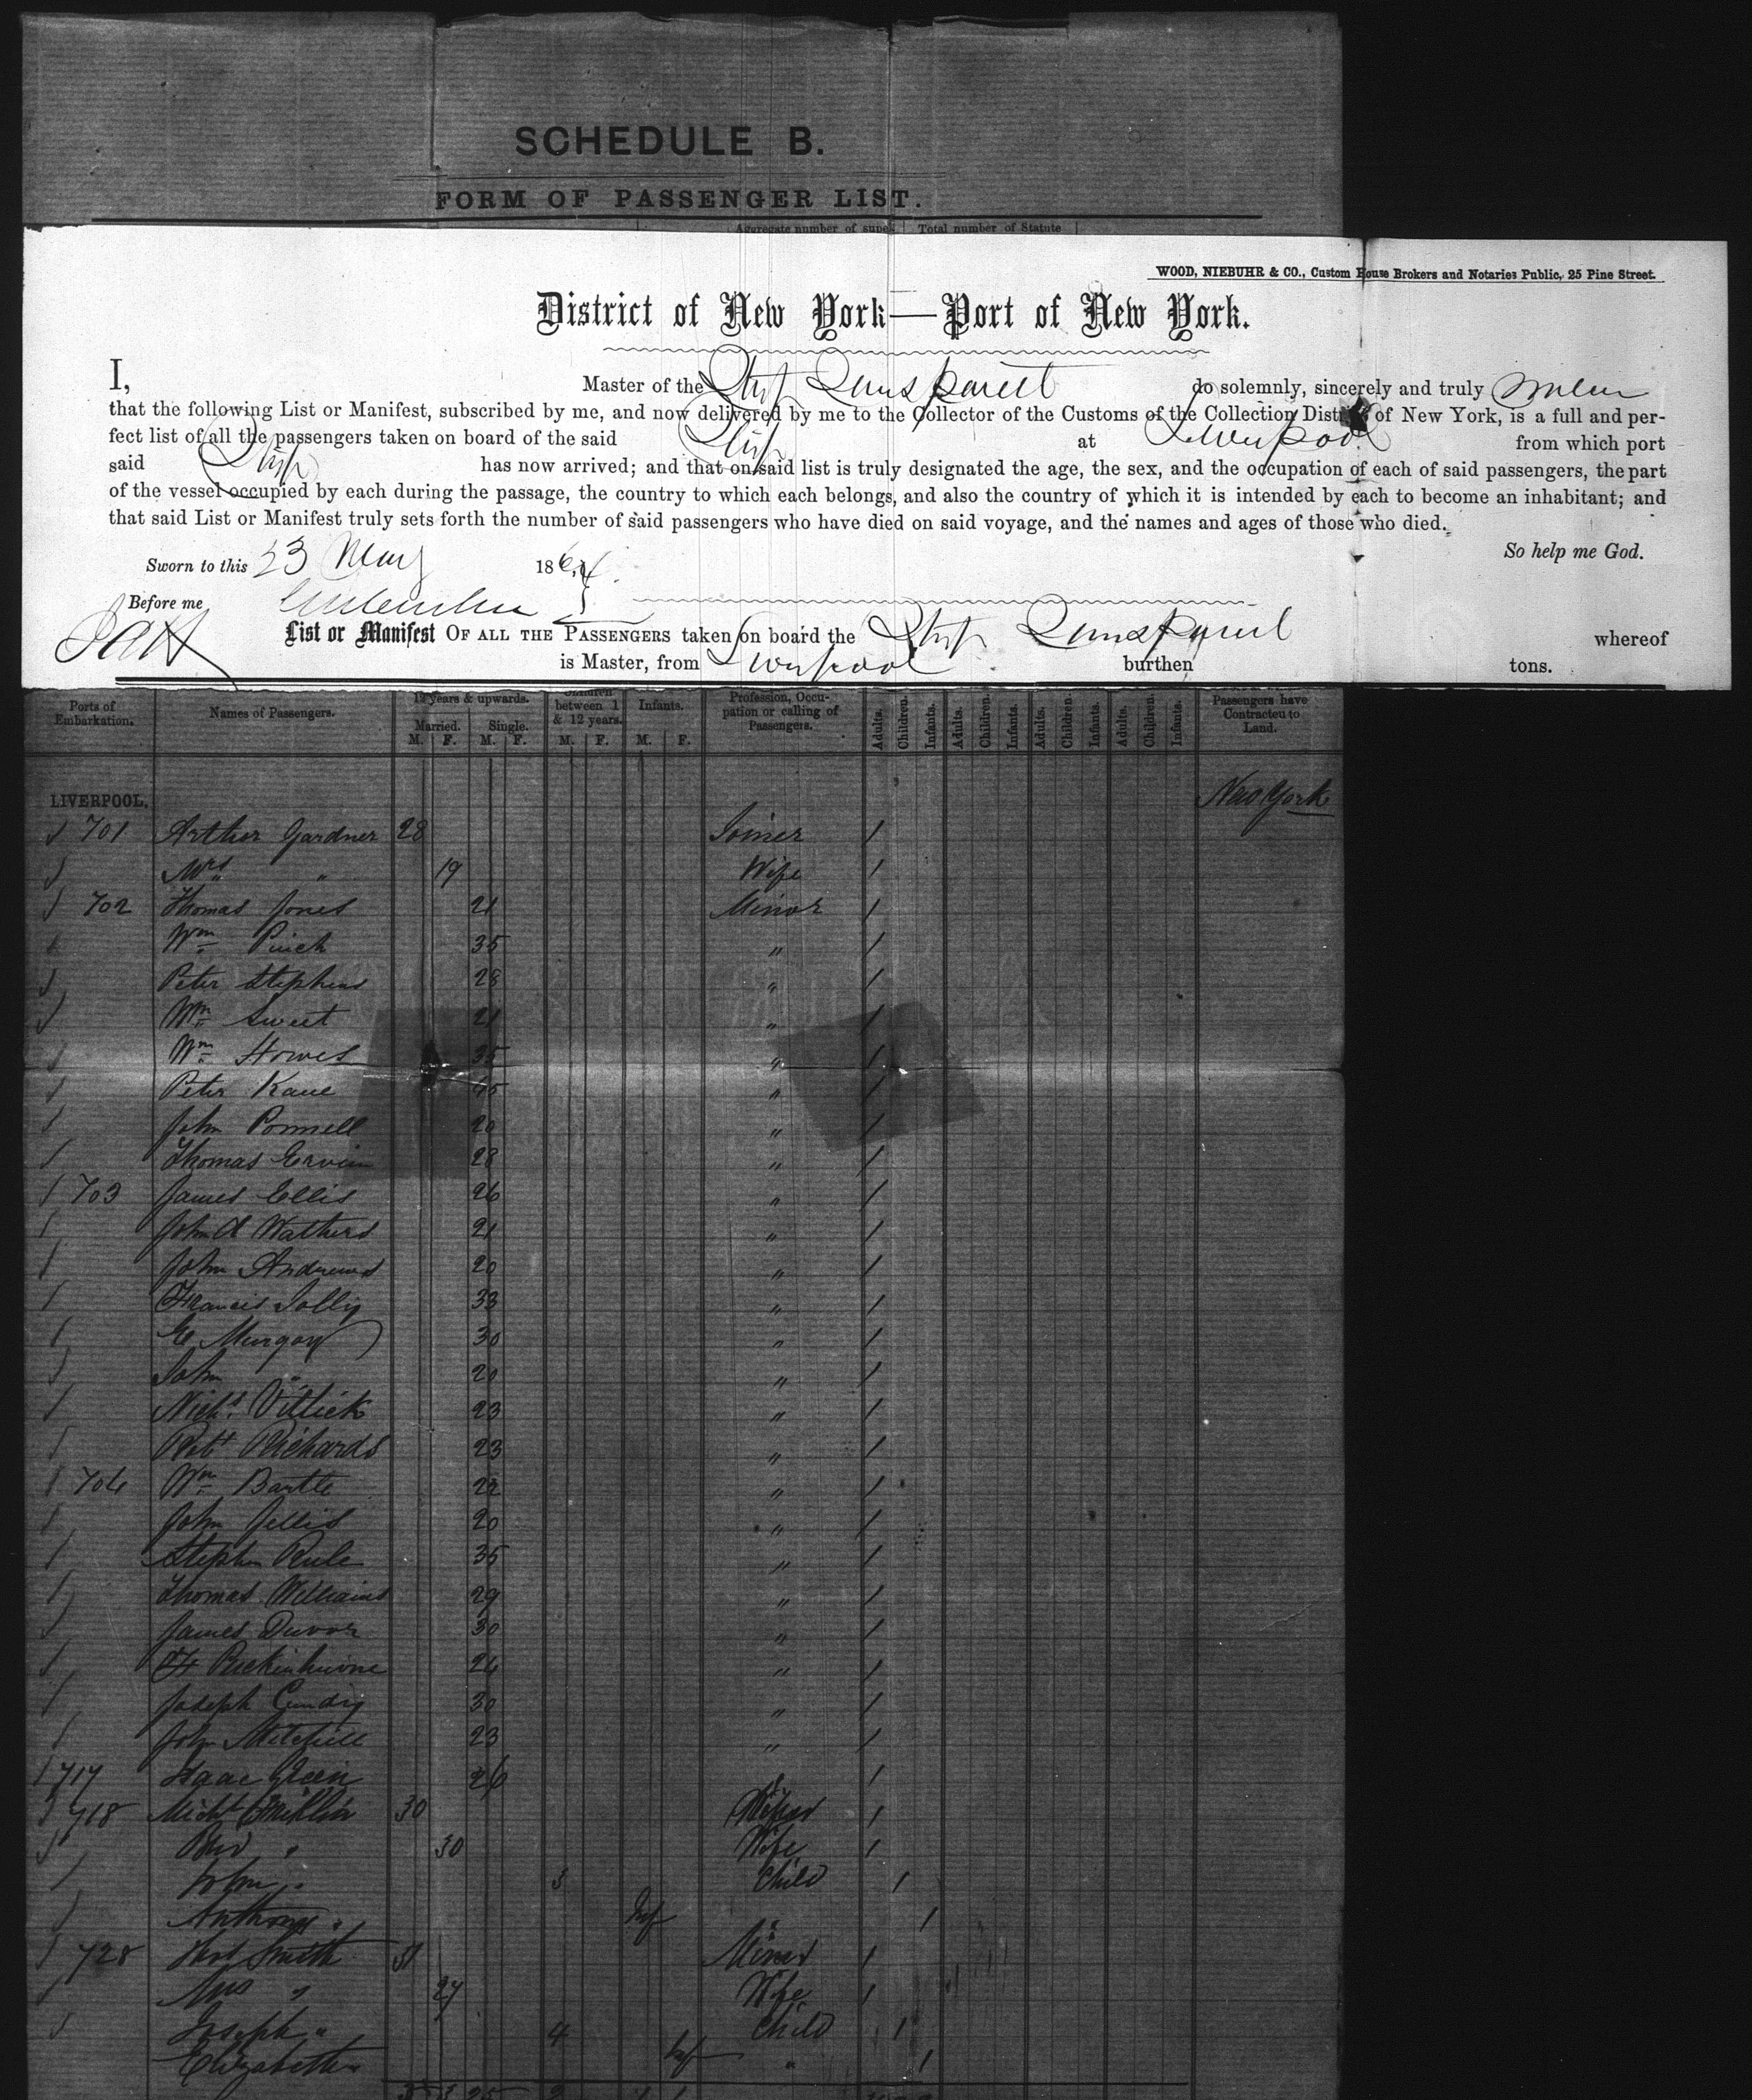 SCHEDULE B.
FORM OF PASSENGER LIST.
Aggregate number of super Total number of Statute
WOOD, NIEBUHR & CO., Custom House Brokers and Notaries Public, 25 Pine Street.
District of New York—Port of New York.
I, Master of the Ship do solemnly, sincerely and truly
that the following List or Manifest, subscribed by me, and now delivered by me to the Collector of the Customs of the Collection District of New York, is a full and per-
fect list of all the passengers taken on board of the said Ship at Liverpool from which port
said Ship has now arrived; and that on said list is truly designated the age, the sex, and the occupation of each of said passengers, the part
of the vessel occupied by each during the passage, the country to which each belongs, and also the country of which it is intended by each to become an inhabitant; and
that said List or Manifest truly sets forth the number of said passengers who have died on said voyage, and the names and ages of those who died.
So help me God.
Sworn to this 23 May 1864
Before me
List or Manifest OF ALL THE PASSENGERS taken on board the Ship whereof
is Master, from Liverpool burthen tons.
Ports of Embarkation. Names of Passengers. 12 years & upwards. Married. M. F. Single. M. F. Children between 1 & 12 years. M. F. Infants. M. F. Profession, Occupation or calling of Passengers. Adults. Children. Infants. Adults. Children. Infants. Adults. Children. Infants. Adults. Children. Infants. Passengers have Contracted to Land.
LIVERPOOL. New York
701 Arthur Gardner 28 Joiner 1
Mrs " 19 Wife 1
702 Thomas Jones 21 Minor 1
Wm Pinch 35 " 1
Peter Stephens 28 " 1
Wm Sweet 21 " 1
Wm Howes 35 " 1
Peter Kane 45 " 1
John 20 " 1
Thomas Ervin 28 " 1
703 James Ellis 26 " 1
John A Wathers 21 " 1
John Andrews 20 " 1
Francis Jolly 33 " 1
E 30 " 1
John " 20 " 1
Nichs. 23 " 1
Robt Richards 23 " 1
704 Wm Bartle 22 " 1
John Jellis 20 " 1
Stephen Rule 35 " 1
Thomas Williams 29 " 1
James 30 " 1
24 " 1
Joseph Cundy 30 " 1
John Mitchell 23 " 1
717 Isaac Green 26 1
718 Michl 30 1
Mrs " 30 Wife 1
John " 3 Child 1
Anthony " Inf " 1
728 Smith 31 Miner 1
Mrs " 27 Wife 1
Joseph " 4 Child 1
Elizabeth " Inf " 1